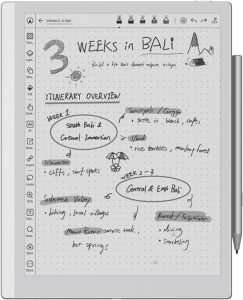 3 WEEKS in BALI
Build a life that doesn't require escape
ITINERARY OVERVIEW
WEEK 1
South Bali &
Cultural Immersion
Seminyak / Canggu
beach, cafes
Ubud
rice terraces, monkey forest
Uluwatu
cliffs, surf spots
WEEK 2-3
Central & East Bali
Sidemen Valley
hiking, local villages
Mount Batur: sunrise trek,
hot springs
Amed / Tulamben
diving
snorkeling